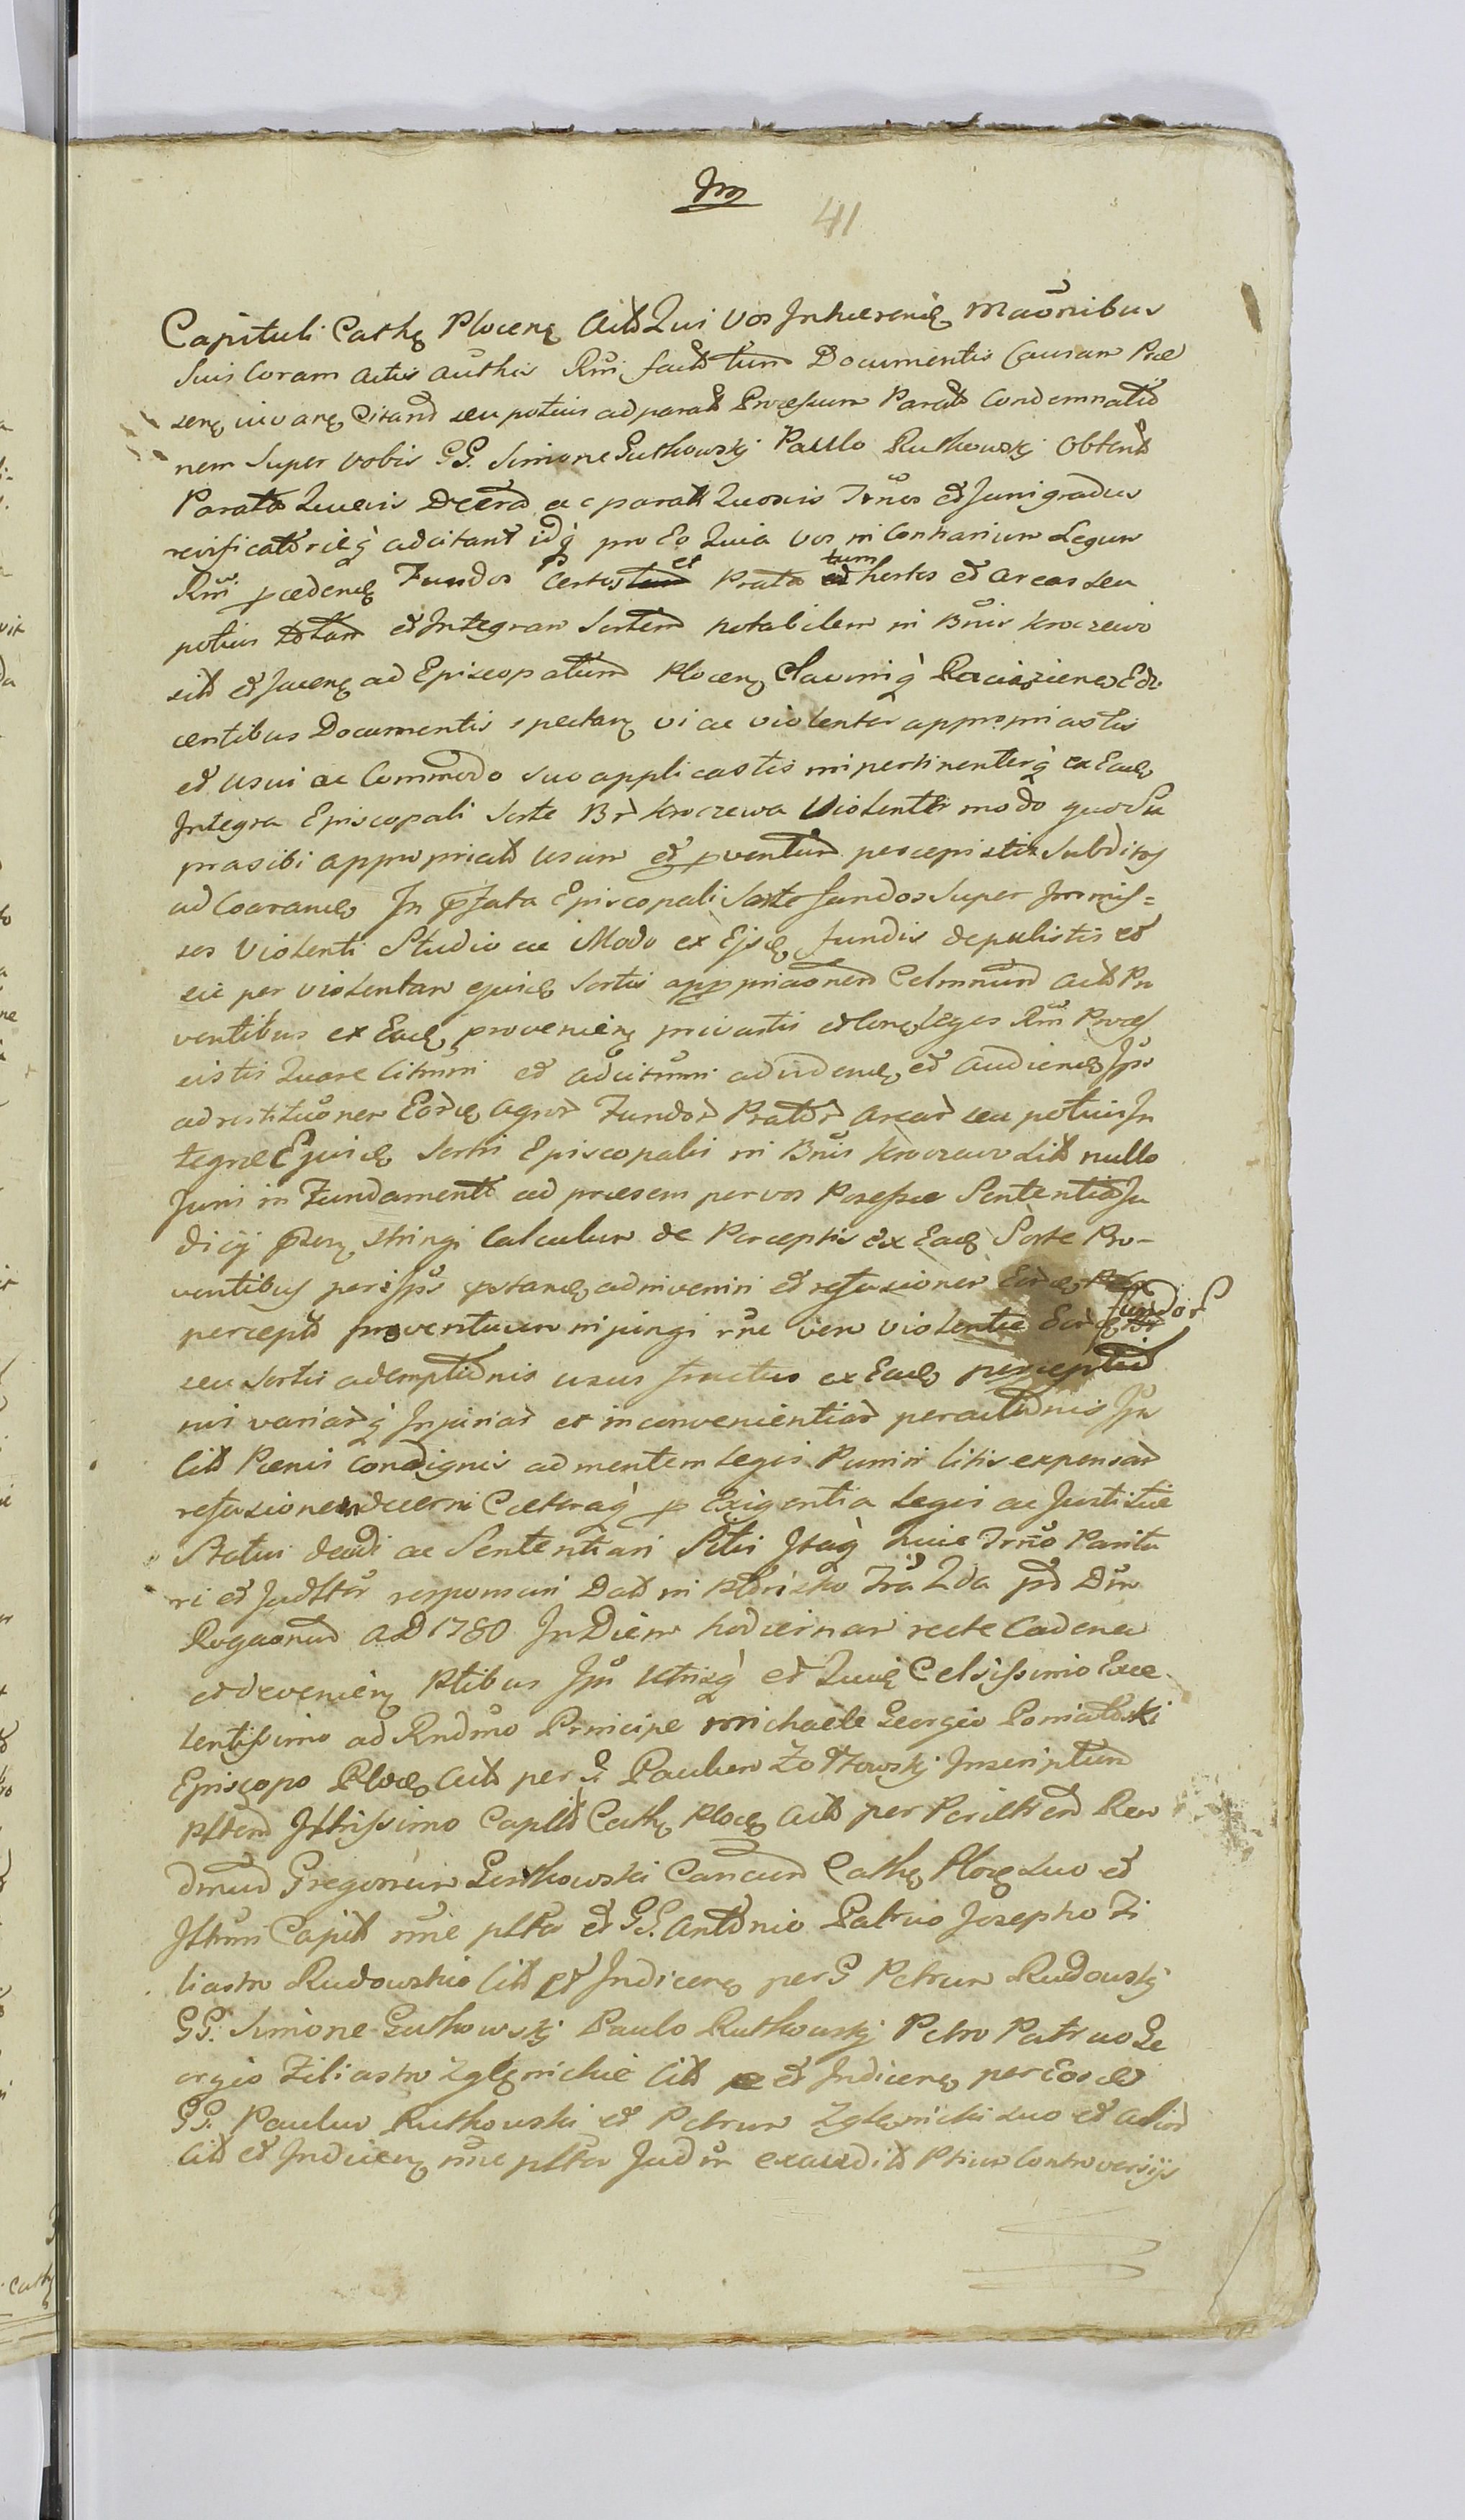 41
Capituli Cathę Plocenę Actt Qui Vos Inhęrendę Maõnibus
Suis Coram Actis Authcis Rni factt tum Documentis Causam Prae
senę vivo arę Citand seu potius ad paratt Processum Paratt Condemnatio
nem Super vobis GG. Simone Gutkowskj Paulo Rutkowskj Obtentt
Paratt Quavis Dcerd ac paratt Quosvis Trnos et Juni gradus
reificattrieq̀ adcitant idq̀ pro Eo Quia Vos in Contrarium Legum
Rni praedendę Fundos Certos et Prata tum hortos et areas seu
potius totam et Integram Sortem notabilem in Bnis Kroczewo
sitt et Jacenę ad Episcopatum Plocenę Clavemq̀ Raciązienę Edo
centibus Documentis spectanę vi ac violenter appropriastis
et usui ac Commodo suo applicastis impertinenterq̀ ex Eadę
Integra Episcopali Sorte Br Kroczewa Violenti modo quo Su
pra sibi appropriatt usum et pventum percepistis Subditos
ad Coarandę In pfata Episcopali Sorte fundos Super Immis=
sos Violenti Studio ac Modo ex Ejsdę fundis depulistis et
sic per violentam ejusdę Sortis appropriaonem Celmnum Actt Pro
ventibus ex Eadę provenienę privastis et Conę leges Rni Process
istis Quare Citmini et adcitmini ad videndę et Audiendę Ips
ad restituoner Eordę Agror Fundor Prattr Arear seu potius In
tegrae Ejusdę Sortis Episcopalis in Bnis Kroczewo Sitt nullo
Juris in Fundamentt ad praesens per vos Possessae Sententia Ju
dicij pnsenę stringi Calculum de Perceptis ex Eadę Sorte Pro-
ventibus per Ips pstandę adinveniri et refusioner Eordę
perceptt proventuum injungi rne vero violentae Eordę fundor
seu Sortis ademptionis usus fructus ex Eadę perceptio
nis variarq̀ Injuriar et inconvenientiar peractionis Ips
Citt Poenis Condignis ad mentem legis Puniri litis expensar
refusionem decerni Caeteraq̀ p Exigentia Legis ac Justitiae
Statui decidi ac Sententiari Sitis Itaq̀ huic Trno Paritu
ri et Judltr responsuri Datt in Płońsko Fra 2da pt Dnm
Rogaonum AD 1780 In Diem hodiernam recte Cadena
et devenienę Ptibus Ips Utrisq̀ et Quidę Celsissimo Exce
lentissimo ad Rndmo Principe Michaele Georgio Poniattski
Episcopo Plocę Actt per G. Paulum Żółtowskj Inscriptum
plten Illtrissimo Capltt Cathę Plocę Actt per Perilltrem Rev
dmum Gregorium Gutkowski Canonum Cathę Plocę Suo et
Illtrmi Capitt nne pltr et GG. Antonio Patruo Josepho Fi
liastro Rudowskie Citt et Indicenę per G Petrum Rudowskj
GG. Simone Gutkowskj Paulo Rutkowskj Petro Patruo Ge
orgio Filiastro Zglęnickie Citt et Indicenę per Eosdę
GG. Paulum Rutkowski et Petrum Zglęnicki suo et alior
Citt et Indicenę nne pltr Judm exauditt Ptium Controversijs